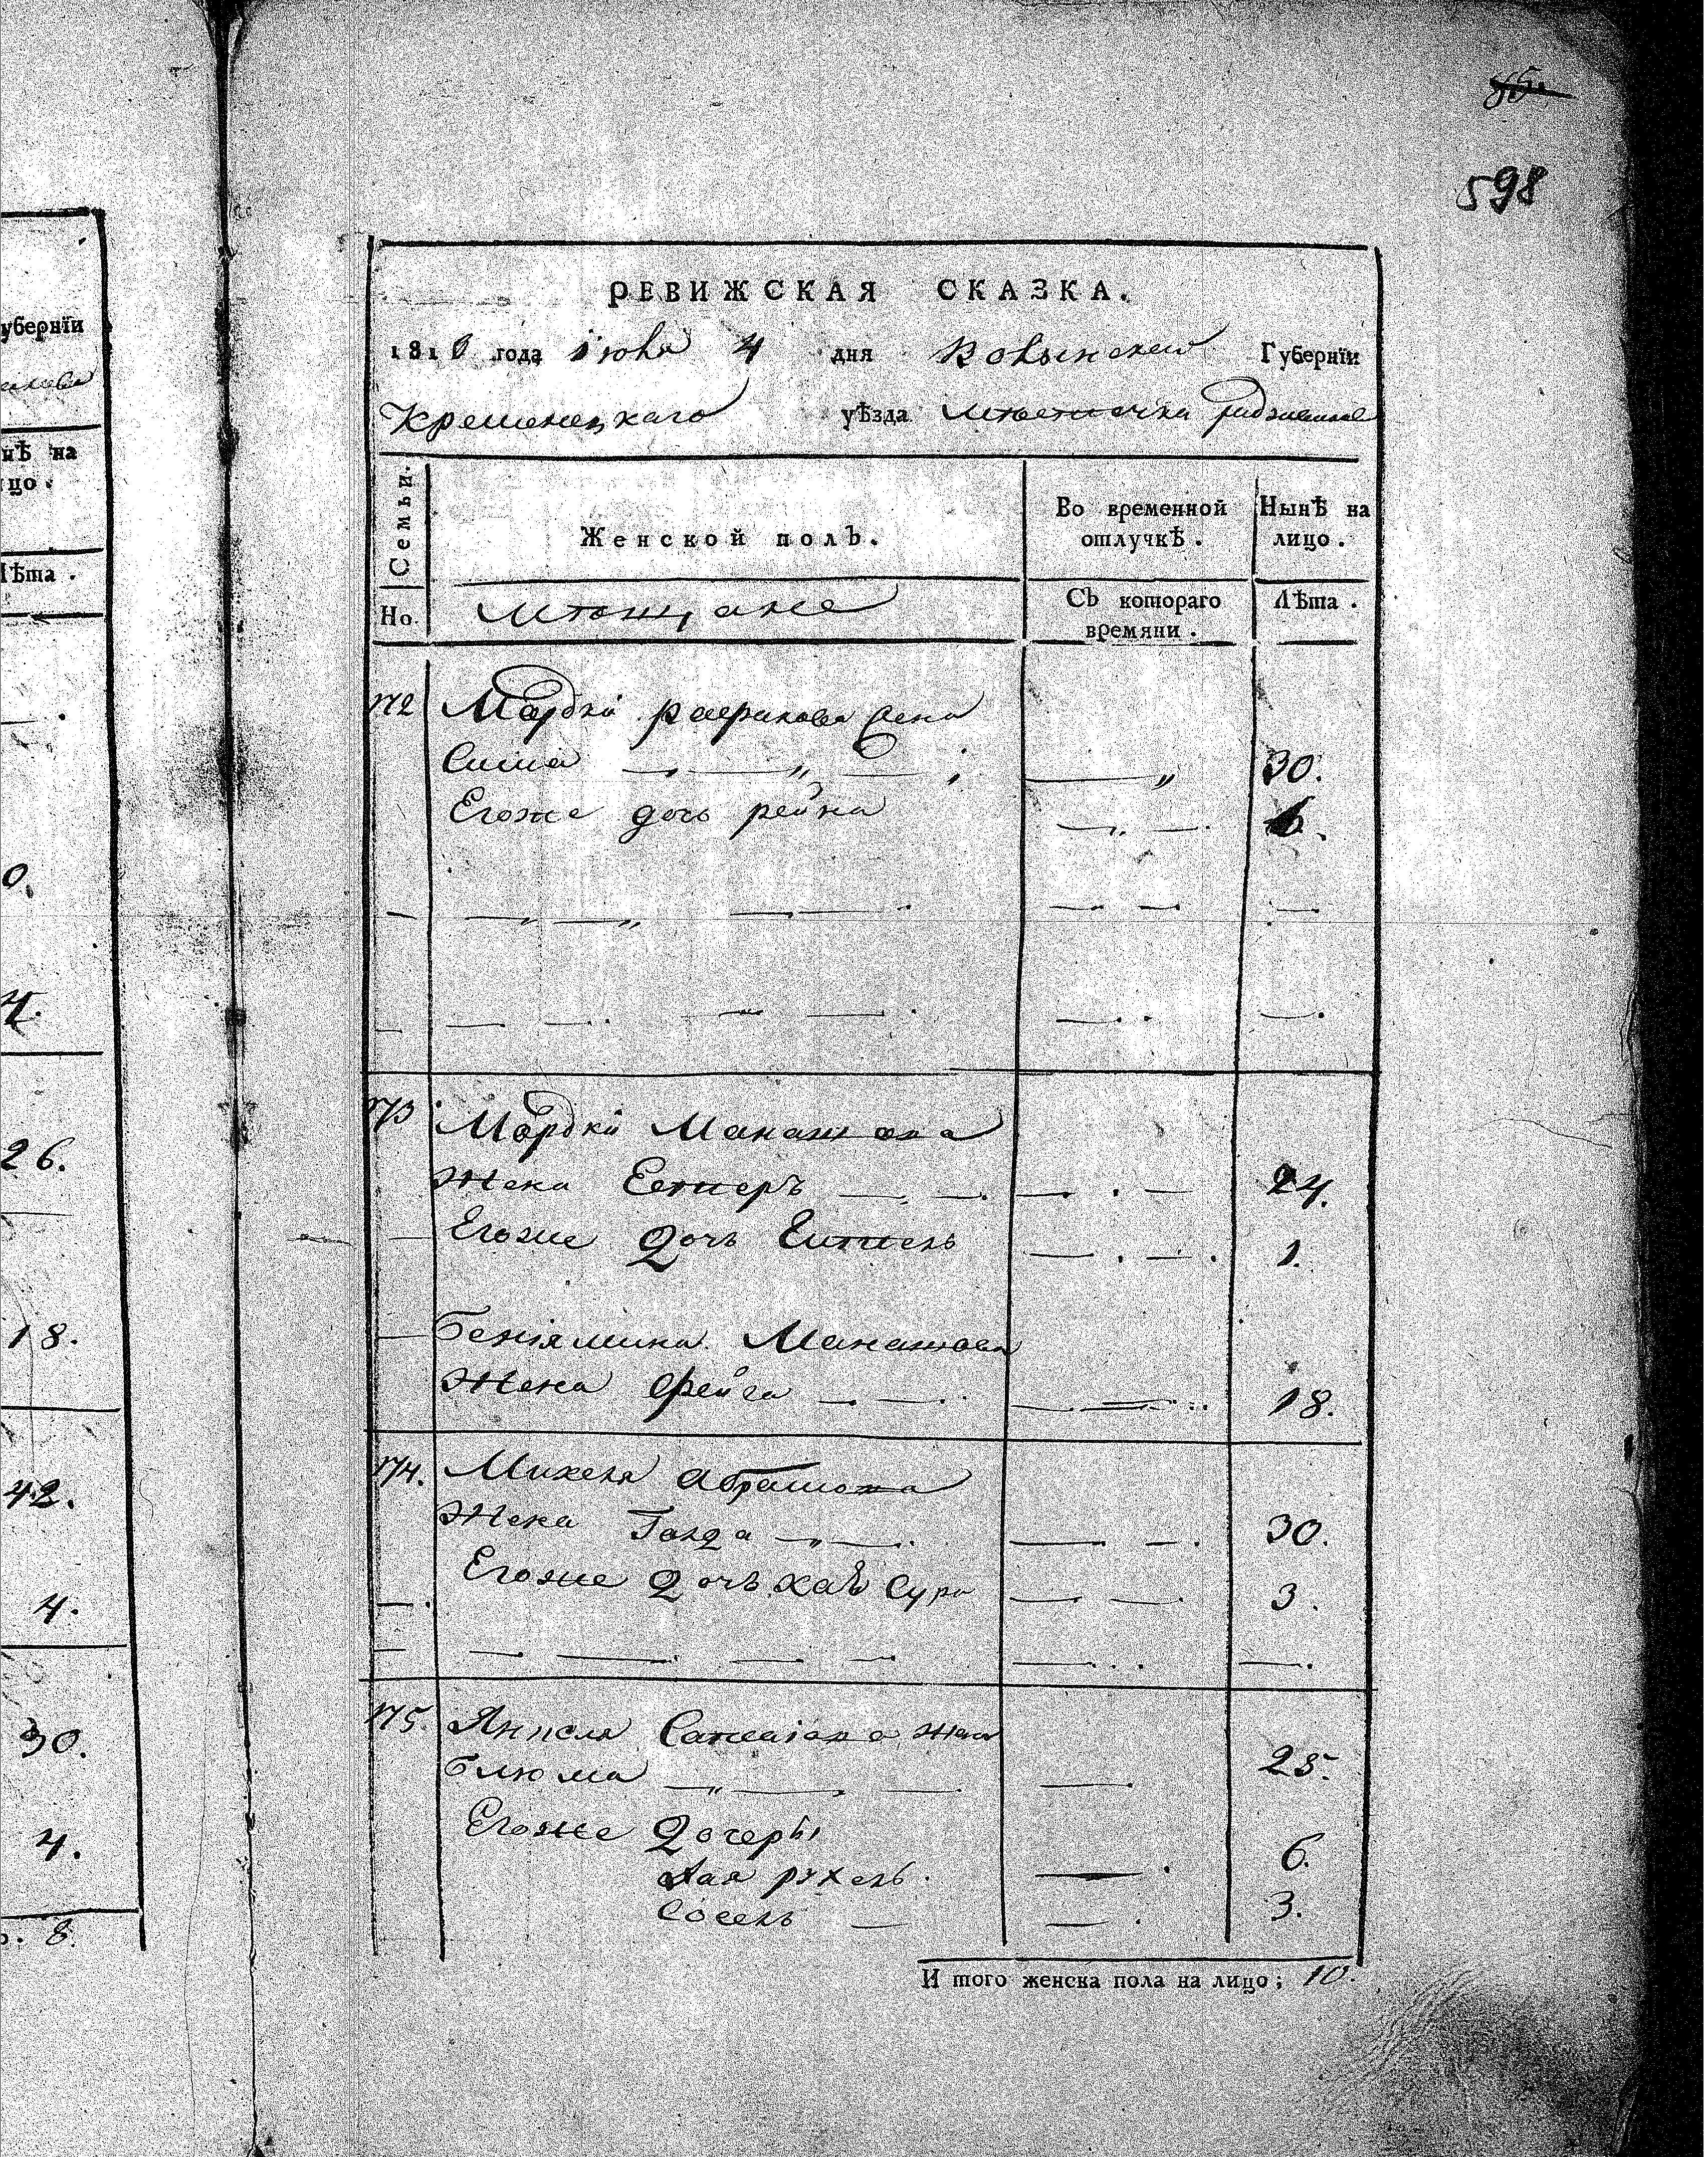 598
уберніи
нѣ на
цо.
Лѣта.
0.
4.
26.
18.
42.
4.
30.
4.
8.
РЕВИЖСКАЯ СКАЗКА.
181 года Іюня 4 дня Волынской Губерніи
Кременецкаго уѣзда Мѣстечка
Семьи. Женской полъ. Во временной отлучкѣ. Нынѣ на лицо.
Но. Мѣщане Съ котораго времяни. Лѣта.
172 Мордки жена
Сима 30.
Егоже дочь рейна
173 Мордки Манашова
Жена Естеръ 24.
Егоже Дочь 1.
Беніямина Манашова
Жена Фейга 18.
174. Михеля Абрамова
Жена Голда 30.
Егоже Дочь Сура 3.
175. Аншеля жена
Блюма 25.
Егоже Дочеры
рухель. 6.
Сосель 3.
И того женска пола на лицо; 10.